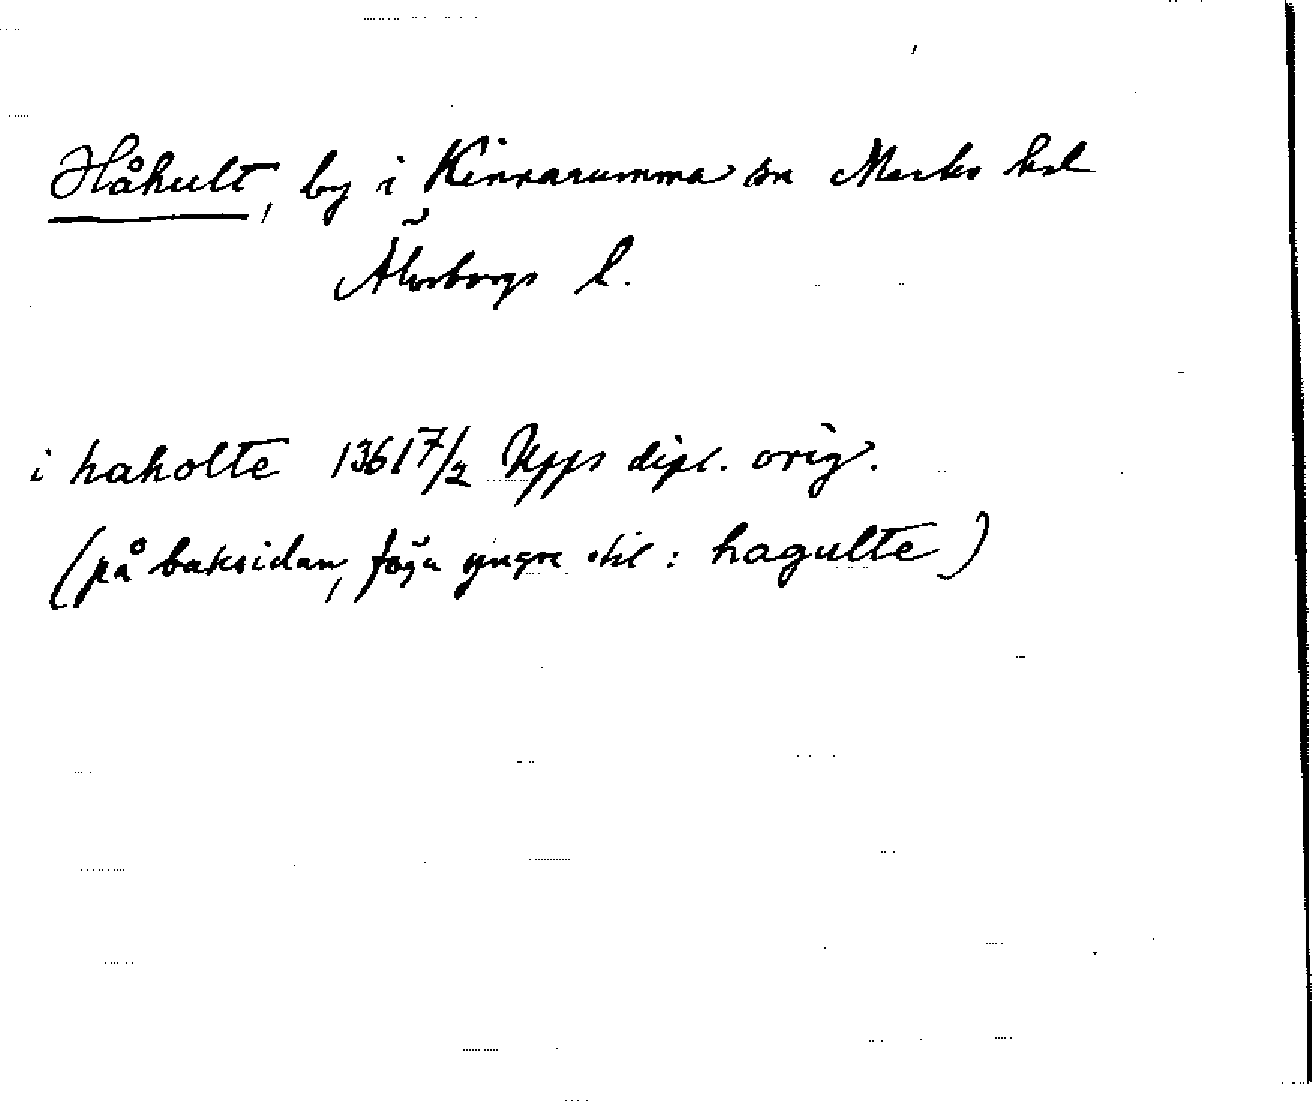 Håhult, by i Kinnarumma sn Marks hd
Älvsborgs l.
i haholte 1361 7/2 Upps dipl. orig.
(på baksidan, föga yngre stil: hagulte)